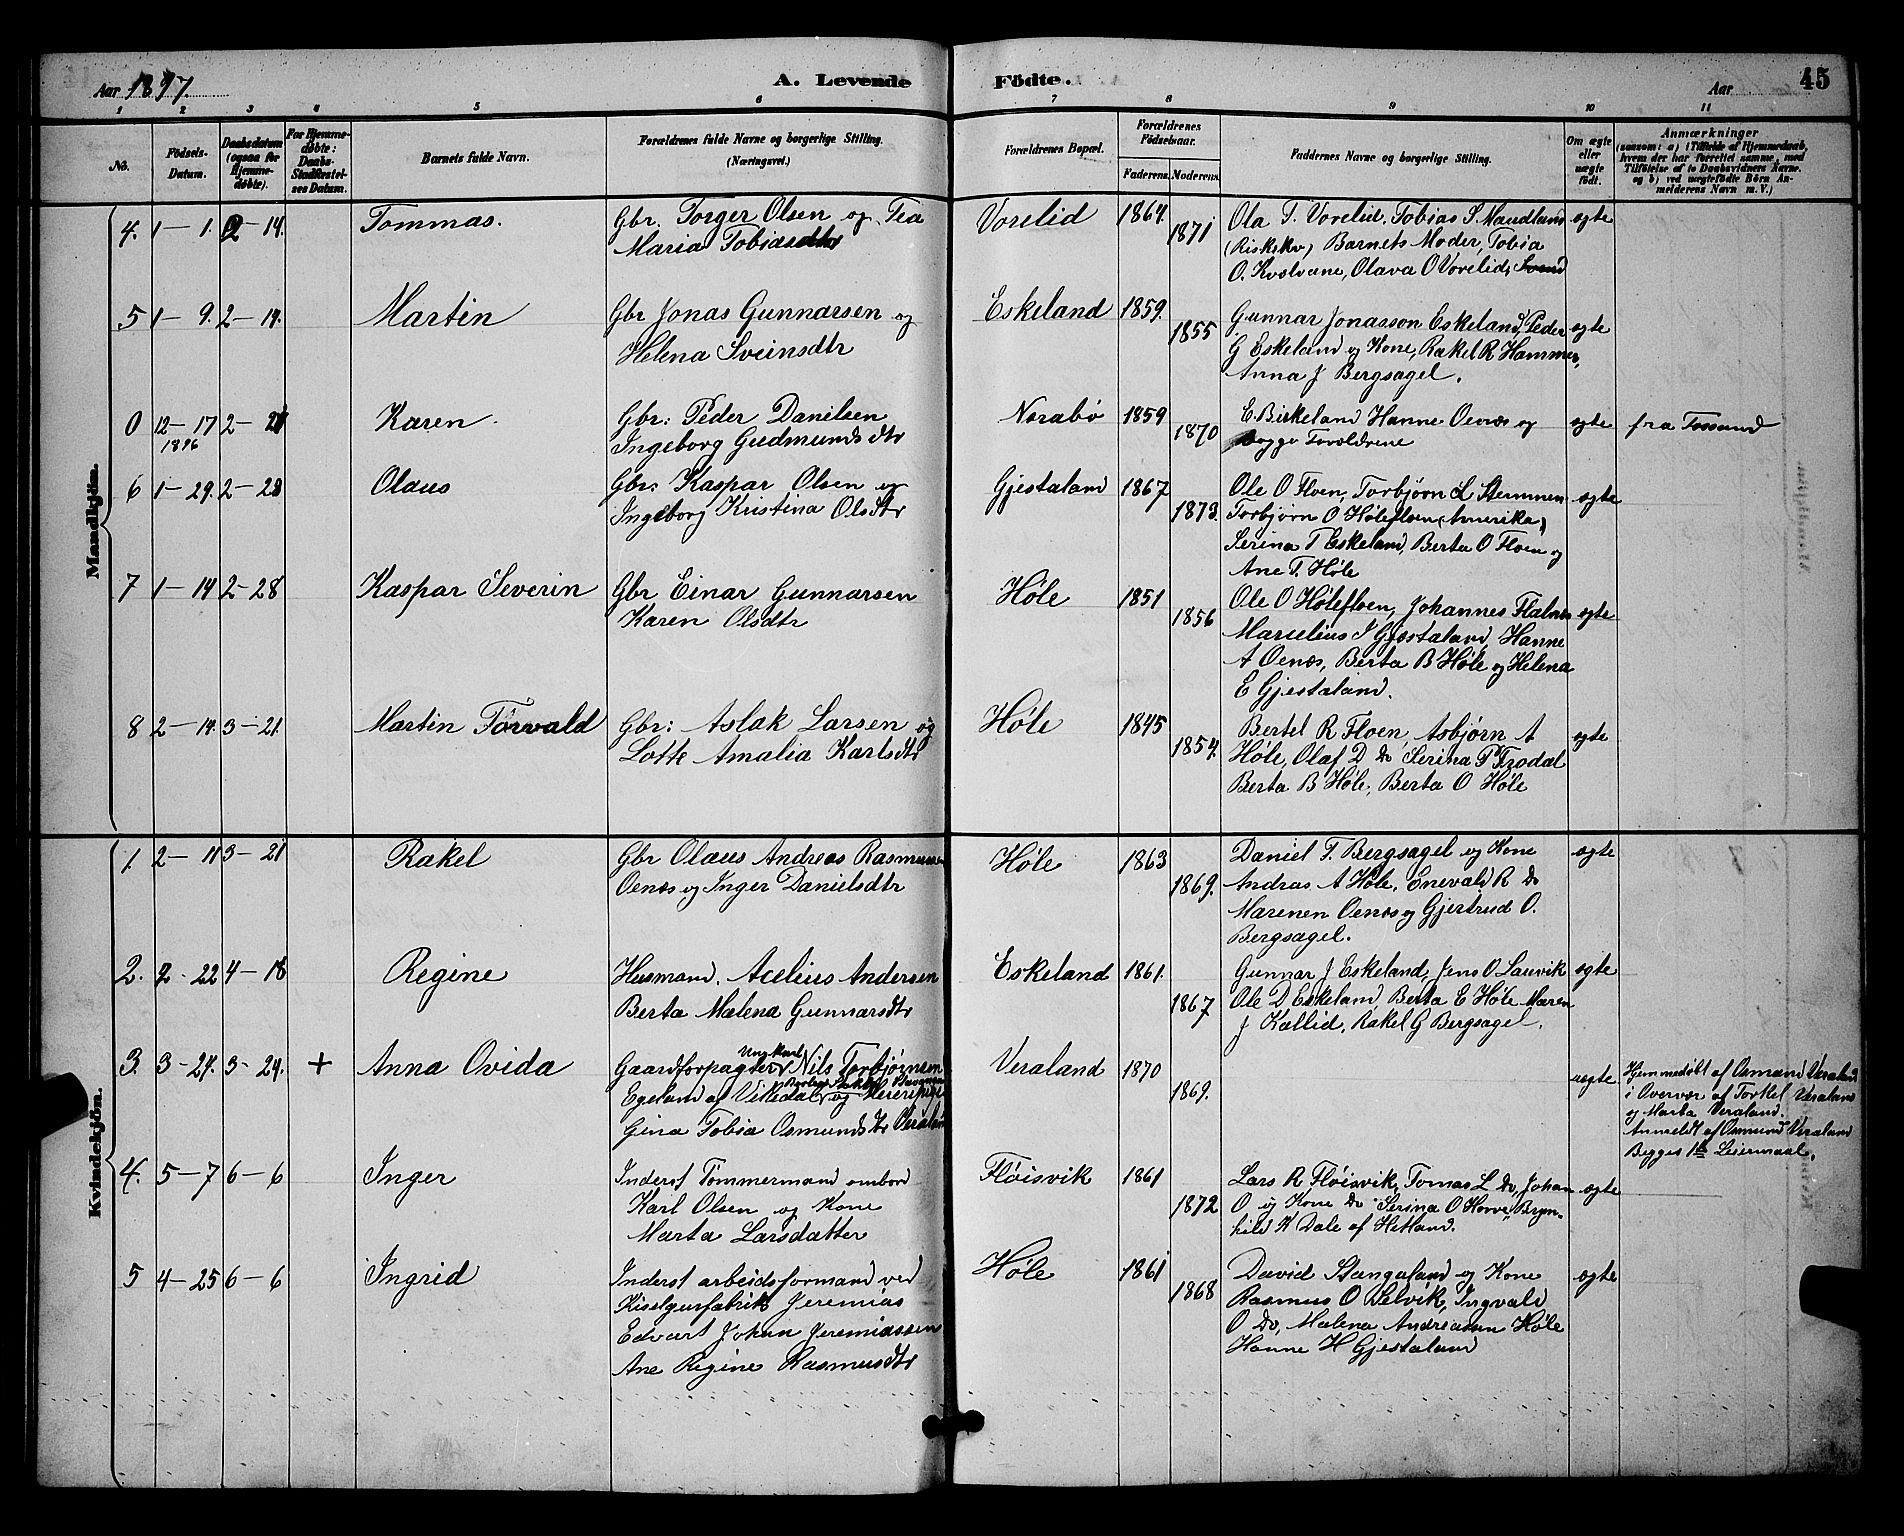 Aar 1897.
A. Levende Födte.
Aar
45
1 2 3 4 5 6 7 8 9 10 11
No.
Födsels-Datum.
Daabsdatum (ogsaa for Hjemme-döbte).
For Hjemme-döbte: Daabs-Stadfæstel-ses Datum.
Barnets fulde Navn.
Forældrenes fulde Navne og borgerlige Stilling.
(Næringsvei.)
Forældrenes Bopæl.
Forældrenes Födselsaar.
Faderens. Moderens.
Faddernes Navne og borgerlige Stilling.
Om ægte eller uægte født.
Anmærkninger
(saasom: a) i Tilfælde af Hjemmedaab,
hvem der har forrettet samme, med
Tilföielse af to Daabsvidners Navne,
og b) ved uægtefødte Börn An-
melderens Navn m.V.)
Mandkjön.
4. 1–1. 2–14. Tommas. Gbr. Torger Olsen og Tea
Maria Tobiasdtr
Vorelid 1864. 1871
Ola T. Vorelid, Tobias S. Maudland
(Riskekv) Barnets Moder, Tobia
O. Kvalvane, Olava O Vorelid,
ægte
5 1–9. 2–14. Martin Gbr Jonas Gunnarsen og
Helena Sveinsdtr
Eskeland 1859. 1855
Gunnar Jonasson Eskeland, Peder
G Eskeland og Kone, Rakel R Hammer,
Anna J Bergsagel.
ægte
0 12–17 1896 2–21 Karen. Gbr: Peder Danielsen
Ingeborg Gudmundsdtr
Norabø 1859 1870
E. Birkeland Hanne Oenæs og
begge Forældrene
ægte fra Fossand
6 1–29. 2–28 Olaus Gbr: Kaspar Olsen og
Ingeborg Kristina Olsdtr
Gjestaland 1867 1873.
Ole O Floen, Torbjørn L Stemmen
Torbjørn O Hølefloen (Amerika)
Serina T Eskeland, Berta O Floen og
Ane T. Høle
ægte
7 1–14 2–28 Kaspar Severin Gbr Einar Gunnarsen
Karen Olsdtr
Høle 1851 1856
Ole O Hølefloen, Johannes
Marselius J Gjestaland, Hanne
A Oenæs, Berta B Høle og Helena
E Gjestaland.
ægte
8 2–14. 3–21. Martin Torvald Gbr: Aslak Larsen og
Lotte Amalia Karlsdtr
Høle 1845 1854.
Bertel R Floen, Asbjørn A
Høle, Olaf D do Serina P Frodal
Berta B Høle, Berta O Høle
ægte
Kvindekjön.
1. 2–11 3–21 Rakel Gbr Olaus Andreas Rasmussen
Oenæs og Inger Danielsdtr
Høle 1863 1869.
Daniel T. Bergsagel og Kone
Andras A Høle, Enevald R do
Marenen Oenæs og Gjertrud O.
Bergsagel.
ægte
2. 2–22 4–18 Regine Husmand. Acelius Andersen
Berta Malena Gunnarsdtr
Eskeland 1861. 1867
Gunnar J Eskeland, Jens O. Lauvik
Ole D Eskeland, Berta E Høle Maren
J Kallid, Rakel G Bergsagel.
ægte
3. 3–24. 3–24. + Anna Ovida Gaardforpagter Ungkarl Nils Torbjørnsen
Egeland af Vikedal og
Gina Tobia Osmundsdtr Veraland
Veraland 1870 1869.
uægte
Hjemmedøbt af Osmund Veraland
i Overvær af Torkel Veraland
og Marta Veraland.
Anmeldt af Osmund Veraland
Begges 1ste Leiermaal.
4. 5–7 6–6 Inger Inderst Tømmermand ombord
Karl Olsen og Kone
Marta Larsdatter
Fløisvik 1861 1872
Lars R Fløisvik, Tomas L do, Johan
O og Kone do Serina O Horve, Bryn-
hild K Dale af Hetland.
ægte
5 4–25 6–6 Ingrid Inderst arbeidsformand ved
Kiselgurfabrik Jeremias
Edvart Johan Jeremiassen
Ane Regine Rasmusdtr
Høle 1861 1868
David Stangaland og Kone
Rasmus O Selvik, Ingvald
O do, Malena Andreassen Høle
Hanne H Gjestaland
ægte